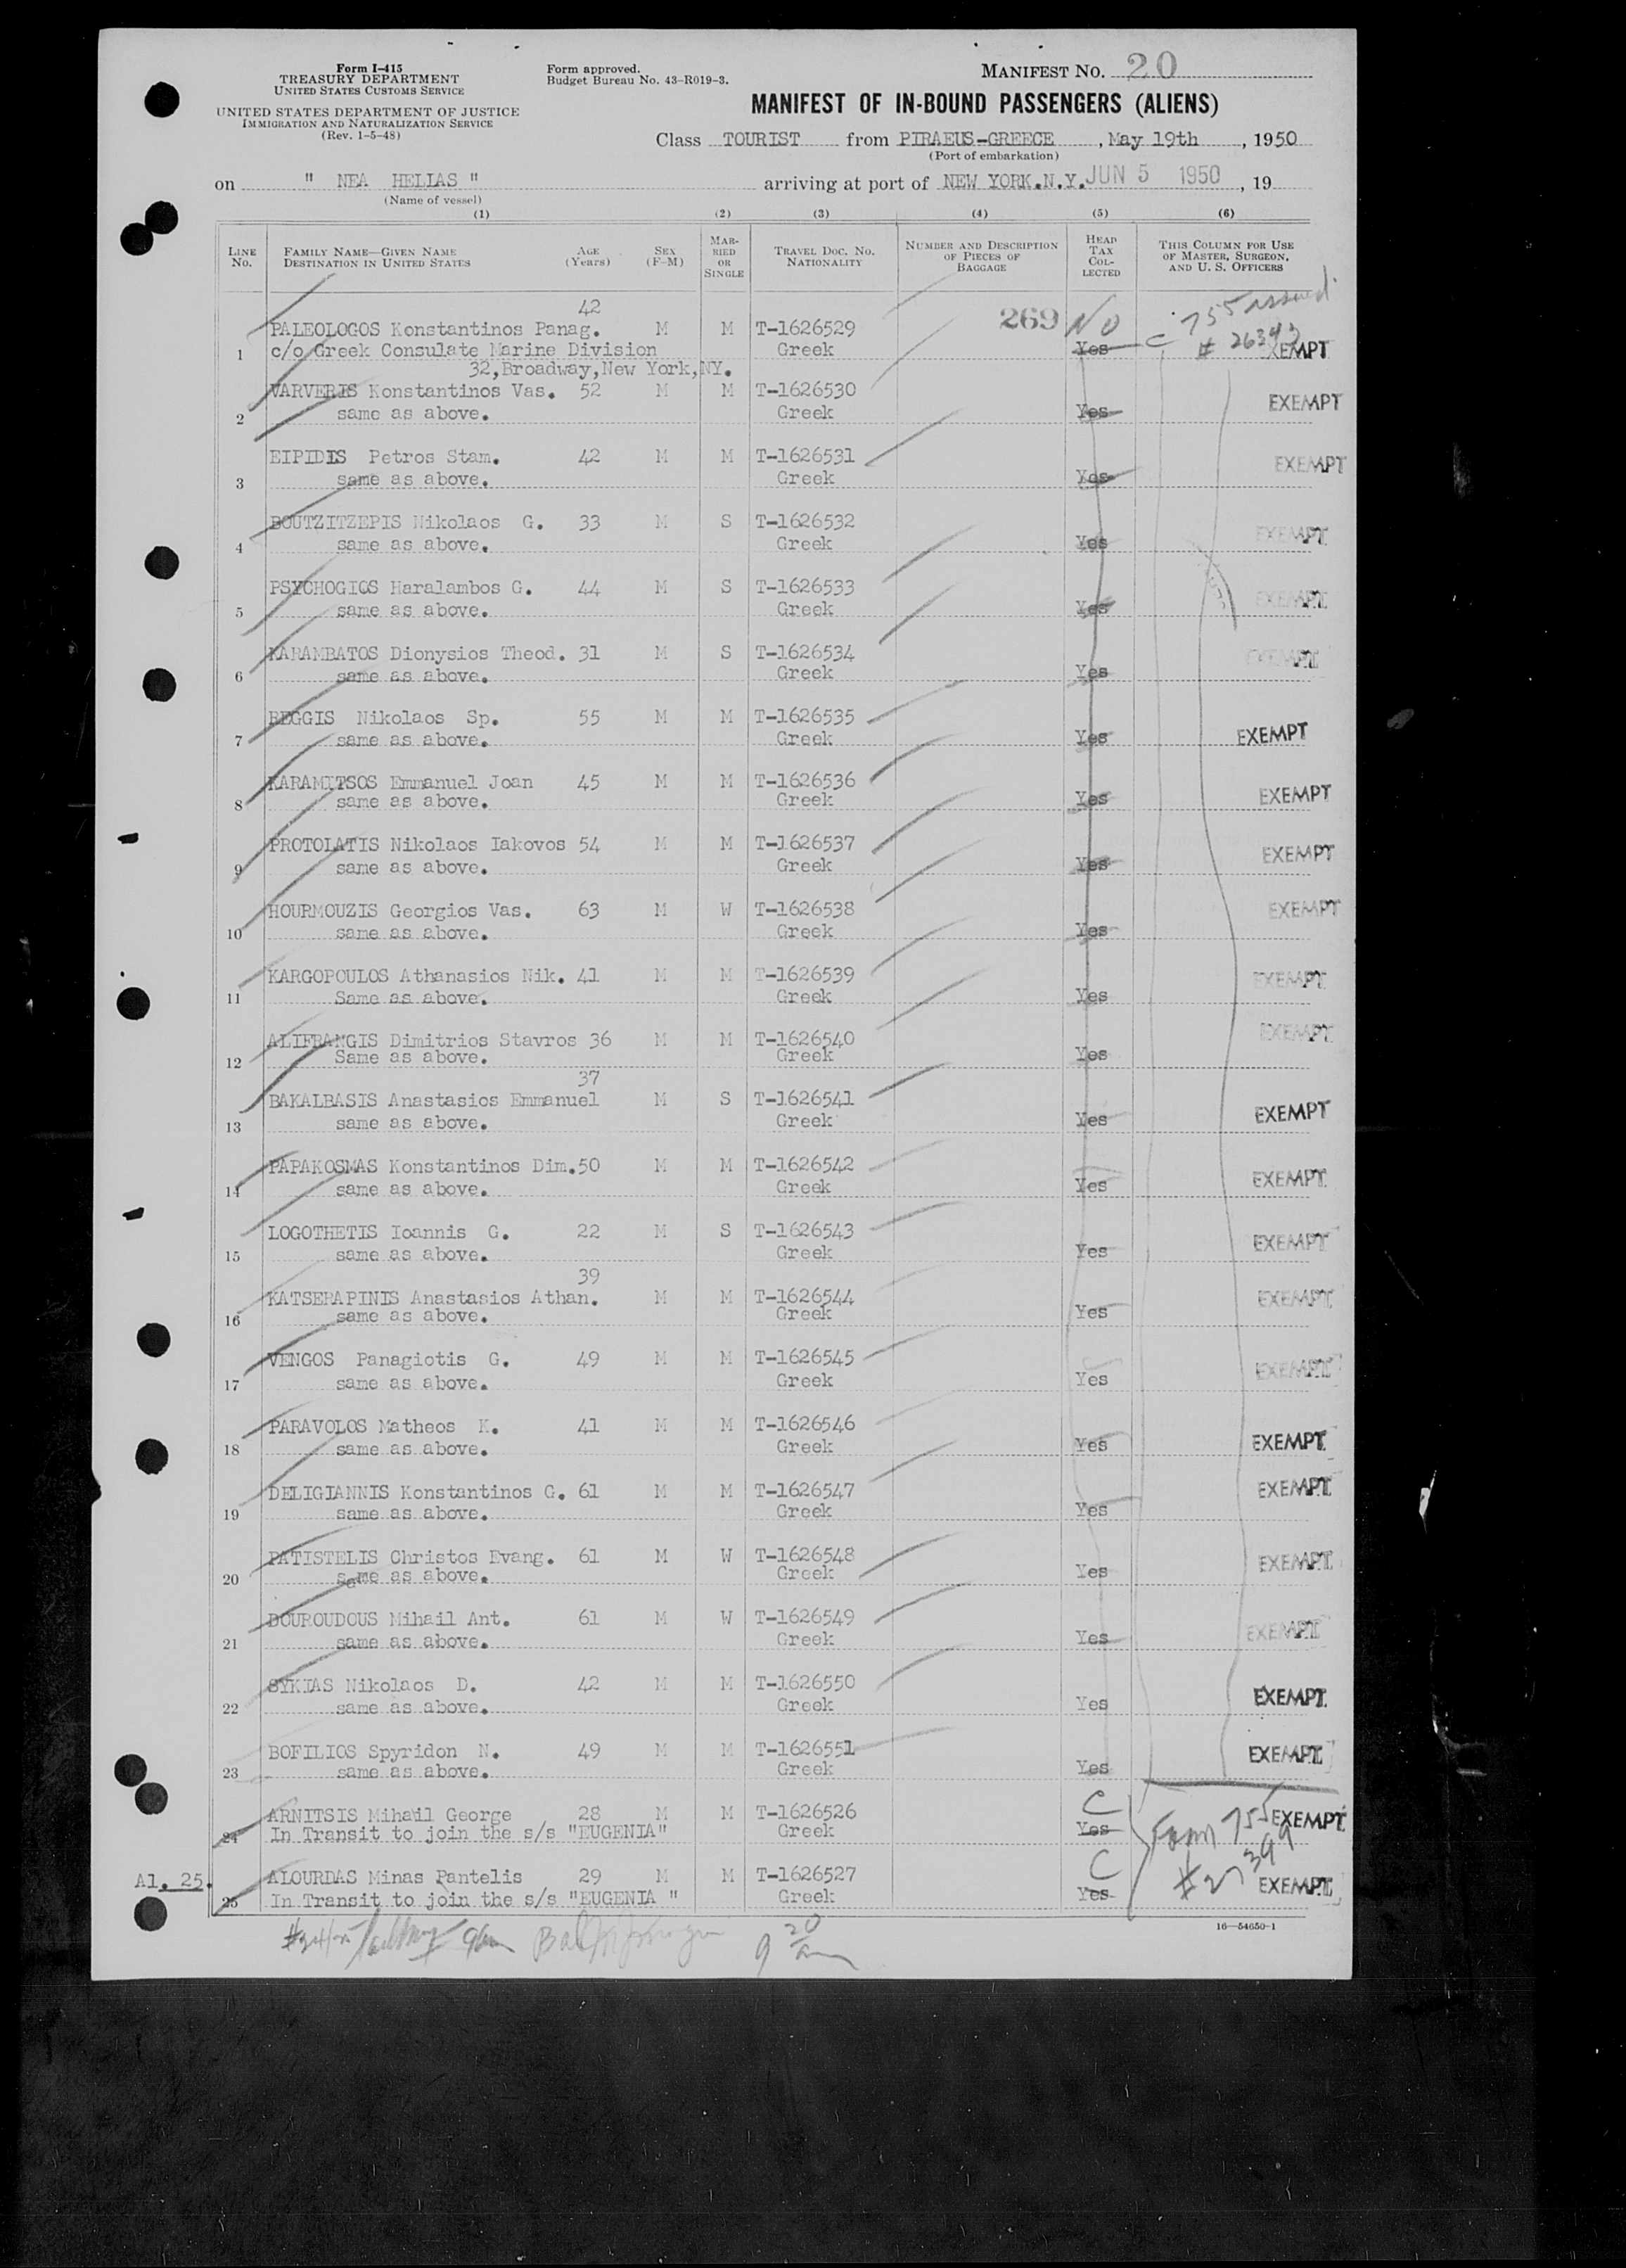 Form I-415
TREASURY DEPARTMENT
UNITED STATES CUSTOMS SERVICE
UNITED STATES DEPARTMENT OF JUSTICE
IMMIGRATION AND NATURALIZATION SERVICE
(Rev. 1-5-48)
Form approved.
Budget Bureau No. 43-R019-3.
MANIFEST NO. 20
MANIFEST OF IN-BOUND PASSENGERS (ALIENS)
Class TOURIST from PIRAEUS-GREECE, May 19th, 1950
(Port of embarkation)
on " NEA HELLAS " arriving at port of NEW YORK.N.Y. JUN 5 1950, 19
(Name of vessel)
(1) (2) (3) (4) (5) (6)
LINE NO. FAMILY NAME—GIVEN NAME DESTINATION IN UNITED STATES AGE (Years) SEX (F-M) MARRIED OR SINGLE TRAVEL DOC. NO. NATIONALITY NUMBER AND DESCRIPTION OF PIECES OF BAGGAGE HEAD TAX COLLECTED THIS COLUMN FOR USE OF MASTER, SURGEON, AND U. S. OFFICERS
42 269 No 755 issued
PALEOLOGOS Konstantinos Panag. M M T-1626529
1 c/o Greek Consulate Marine Division Greek Yes C EXEMPT
32,Broadway,New York,NY.
VARVERIS Konstantinos Vas. 52 M M T-1626530 EXEMPT
2 same as above. Greek Yes
EIPIDIS Petros Stam. 42 M M T-1626531 EXEMPT
3 same as above. Greek Yes
BOUTZITZEPIS Nikolaos G. 33 M S T-1626532 EXEMPT
4 same as above. Greek Yes
PSYCHOGIOS Haralambos G. 44 M S T-1626533 EXEMPT
5 same as above. Greek Yes
KARAMBATOS Dionysios Theod. 31 M S T-1626534 EXEMPT
6 same as above. Greek Yes
BEGGIS Nikolaos Sp. 55 M M T-1626535
7 same as above. Greek Yes EXEMPT
KARAMITSOS Emmanuel Joan 45 M M T-1626536
8 same as above. Greek Yes EXEMPT
PROTOLATIS Nikolaos Iakovos 54 M M T-1626537 EXEMPT
9 same as above. Greek Yes
HOURMOUZIS Georgios Vas. 63 M W T-1626538 EXEMPT
10 same as above. Greek Yes
KARGOPOULOS Athanasios Nik. 41 M M T-1626539 EXEMPT
11 Same as above. Greek Yes
ALIFRANGIS Dimitrios Stavros 36 M M T-1626540 EXEMPT
12 Same as above. Greek Yes
37
BAKALBASIS Anastasios Emmanuel M S T-1626541 EXEMPT
13 same as above. Greek Yes
PAPAKOSMAS Konstantinos Dim. 50 M M T-1626542 EXEMPT
14 same as above. Greek Yes
LOGOTHETIS Ioannis G. 22 M S T-1626543 EXEMPT
15 same as above. Greek Yes
39
KATSERAPINIS Anastasios Athan. M M T-1626544 EXEMPT
16 same as above. Greek Yes
VENGOS Panagiotis G. 49 M M T-1626545 EXEMPT
17 same as above. Greek Yes
PARAVOLOS Matheos K. 41 M M T-1626546 EXEMPT
18 same as above. Greek Yes
DELIGIANNIS Konstantinos G. 61 M M T-1626547 EXEMPT
19 same as above. Greek Yes
PATISTELIS Christos Evang. 61 M W T-1626548 EXEMPT
20 same as above. Greek Yes
DOUROUDOUS Mihail Ant. 61 M W T-1626549 EXEMPT
21 same as above. Greek Yes
SYKIAS Nikolaos D. 42 M M T-1626550 EXEMPT
22 same as above. Greek Yes
BOFILIOS Spyridon N. 49 M M T-1626551 EXEMPT
23 same as above. Greek Yes
ARNITSIS Mihail George 28 M M T-1626526 C Form 755 EXEMPT
24 In Transit to join the s/s "EUGENIA" Greek Yes
Al. 25. ALOURDAS Minas Pantelis 29 M M T-1626527 C EXEMPT
25 In Transit to join the s/s "EUGENIA " Greek Yes
16—54650-1
9 20 am